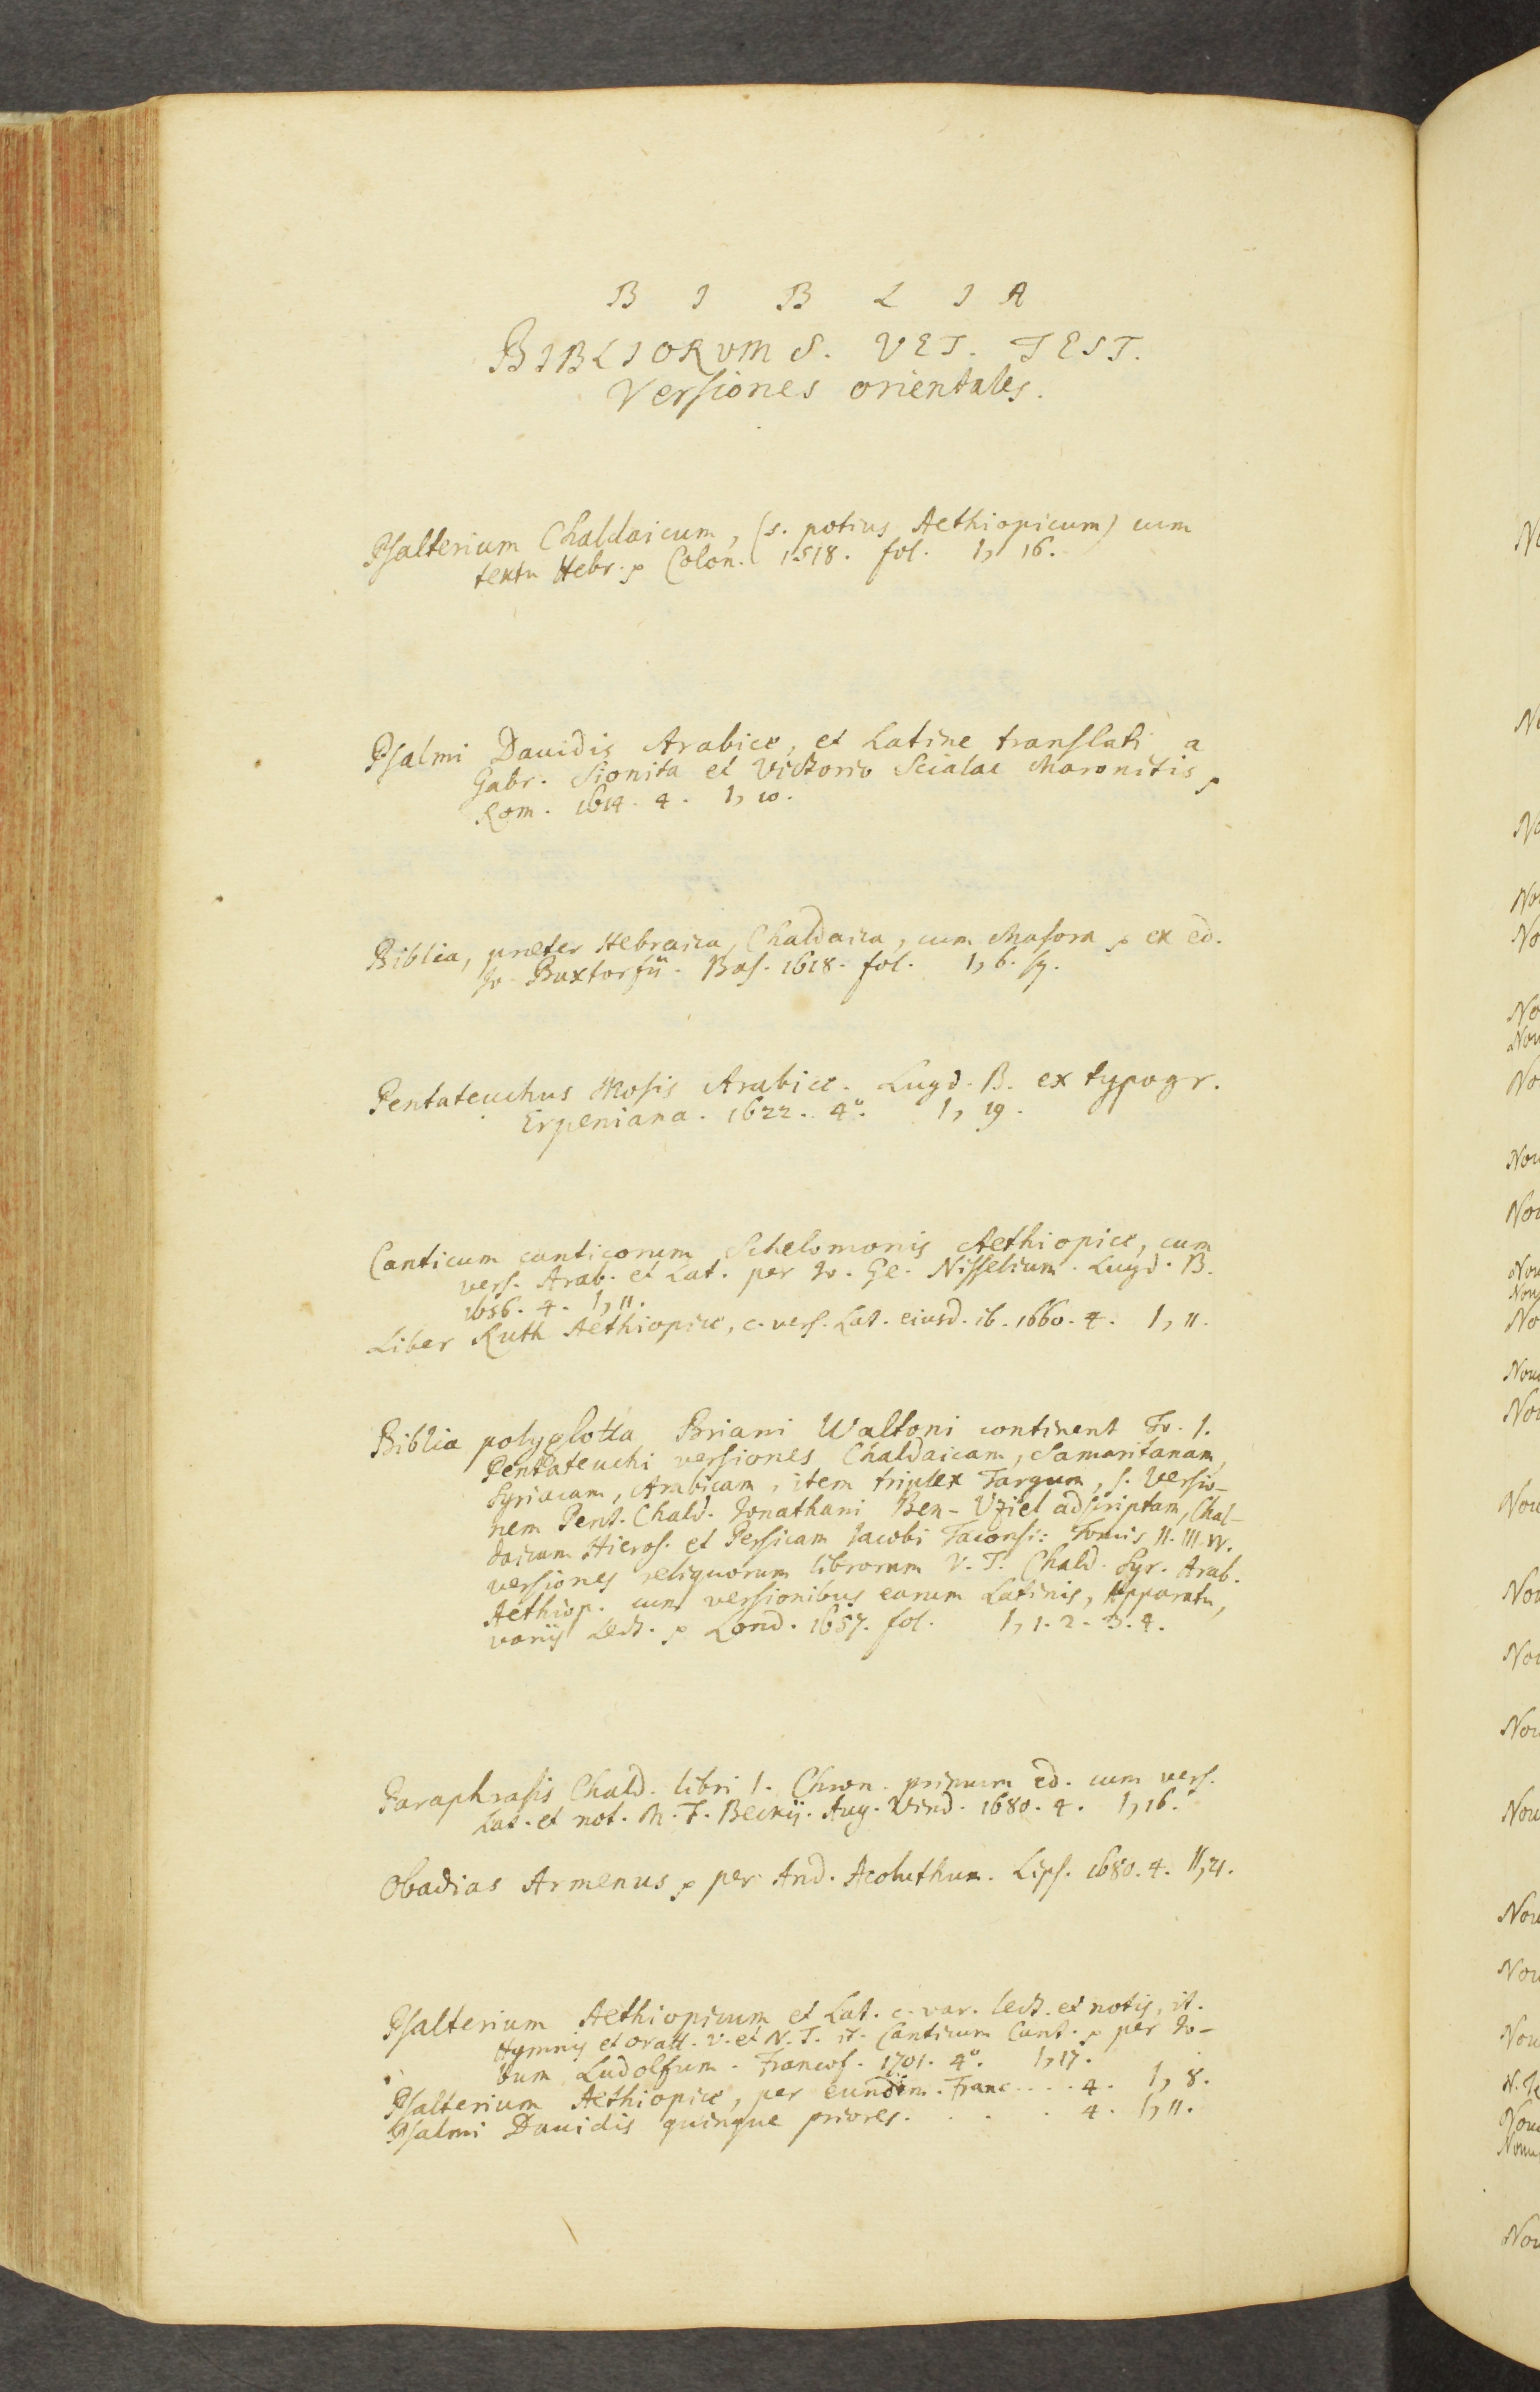 B I B L I A
BIBLIORVM S. VET. TEST.
Versiones orientales.
Psalterium Chaldaicum, (s. potius Aethiopicum) cum
textu Hebr. p Colon. 1518. fol. I, 16.
Psalmi Dauidis Arabice, et Latine translati a
Gabr. Sionita et Victorio Scialac Maronitis p
Rom. 1614. 4. I, 10.
Biblia, praeter Hebraica, Chaldaica, cum Masora p ex ed.
Jo. Buxtorfii. Bas. 1618. fol. I, 6.
Pentateuchus Mosis Arabice. Lugd. B. ex typogr.
Erpeniana. 1622. 4°. I, 19.
Canticum canticorum Schelomonis Aethiopice, cum
vers. Arab. et Lat. per Jo. Ge. Nisselium. Lugd. B.
1656. 4. I, 11.
Liber Ruth Aethiopice, c. vers. Lat. eiusd. ib. 1660. 4. I, 11.
Biblia polyglotta Briani Waltoni continent To. I.
Pentateuchi versiones Chaldaicam, Samaritanam,
Syriacam, Arabicam, item triplex Targum, s. Versio-
nem Pent. Chald. Jonathani Ben-Uziel adscriptam, Chal-
daicam Hieros. et Persicam Jacobi Tawosi: Tomis II. III. IV.
versiones reliquorum librorum V. T. Chald. Syr. Arab.
Aethiop. cum versionibus earum Latinis, Apparatu,
variis Lect. p Lond. 1657. fol. I, 1. 2. 3. 4.
Paraphrasis Chald. libri I. Chron. primum ed. cum vers.
Lat. et not. M. F. Beckii. Aug. Vind. 1680. 4. I, 16.
Obadias Armenus p per And. Acoluthum. Lips. 1680. 4. II, 21.
Psalterium Aethiopicum et Lat. c. var. lect. et notis, it.
Hymnis et oratt. V. et N. T. it. Canticum Cant. p per Jo-
bum Ludolfum. Francof. 1701. 4°. I, 17.
Psalterium Aethiopice, per eundem. Franc. . . . 4. I, 8.
Psalmi Dauidis quinque priores. . . . 4. I, 11.